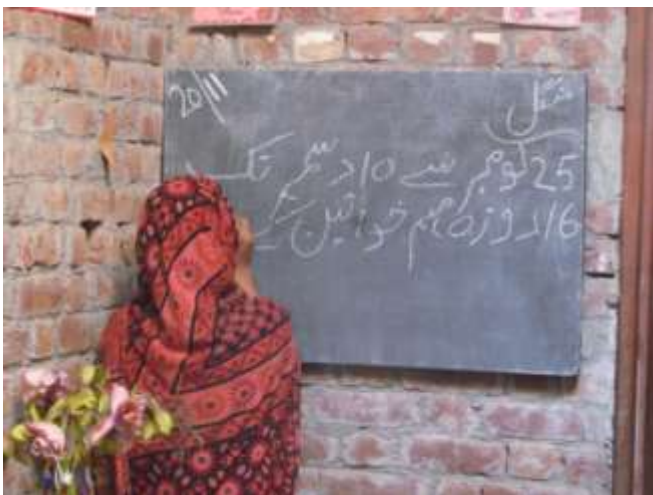 منگل
20/11
25 نومبر سے 10 دسمبر تک
16 روزہ مہم خواتین کے